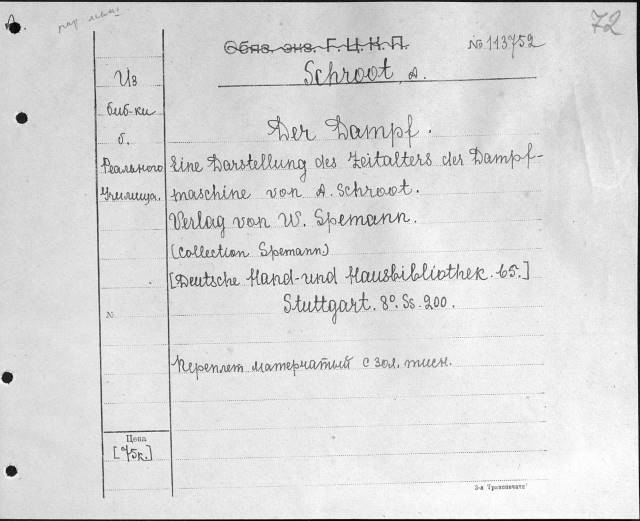 72
Обяз. экз. Г. Ц. К. П.
№ 113752
Schroot, A.
Из
биб-ки
б.
Реального
Училища.
Der Dampf.
Eine Darstellung des Zeitalters des Dampf-
maschine von A. Schroot.
Verlag von W. Spemann.
(Collection Spemann)
[Deutsche Hand- und Hausbibliothek. 65.]
Stuttgart. 8°. Ss. 200.
№
Переплет матерчатый с зол. тисн.
Цена
[75к.]
3-я Транспечать